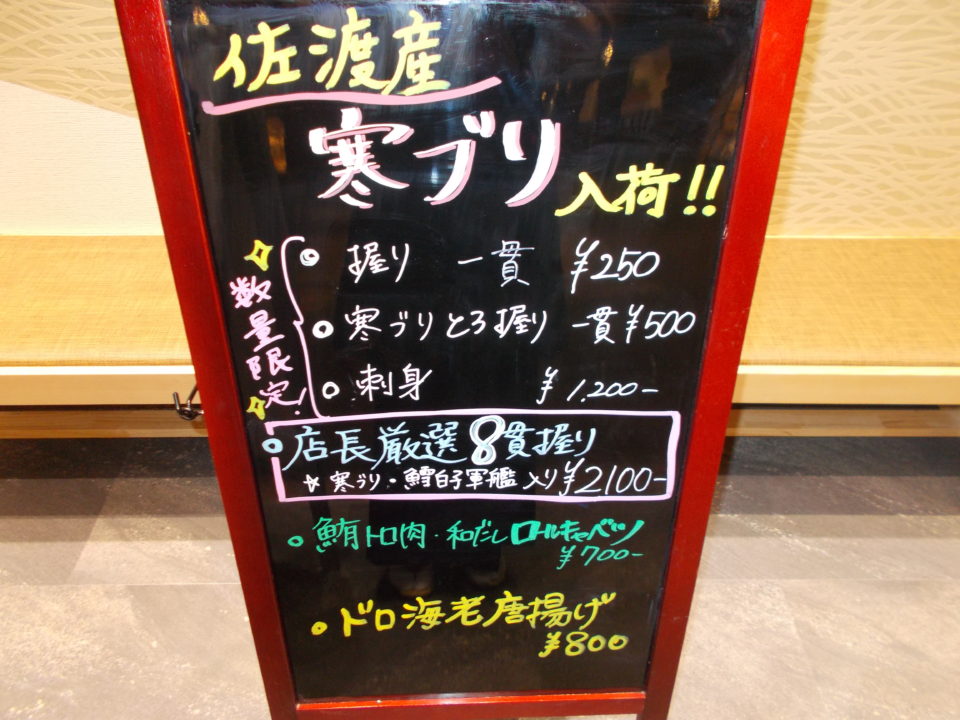 佐渡産
寒ブリ
入荷!!
数量限定!
握り 一貫 ¥250
寒ブリとろ握り 一貫¥500
刺身 ¥1,200-
店長厳選8貫握り
☆寒ブリ・鱈白子軍艦入り¥2100-
鮪トロ肉・和だしロールキャベツ
¥700-
ドロ海老唐揚げ
¥800